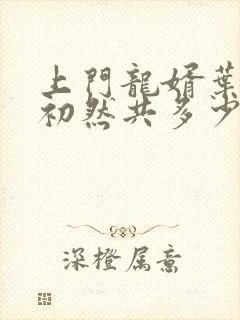 上門龍婿葉
初然共多少
深橙属意